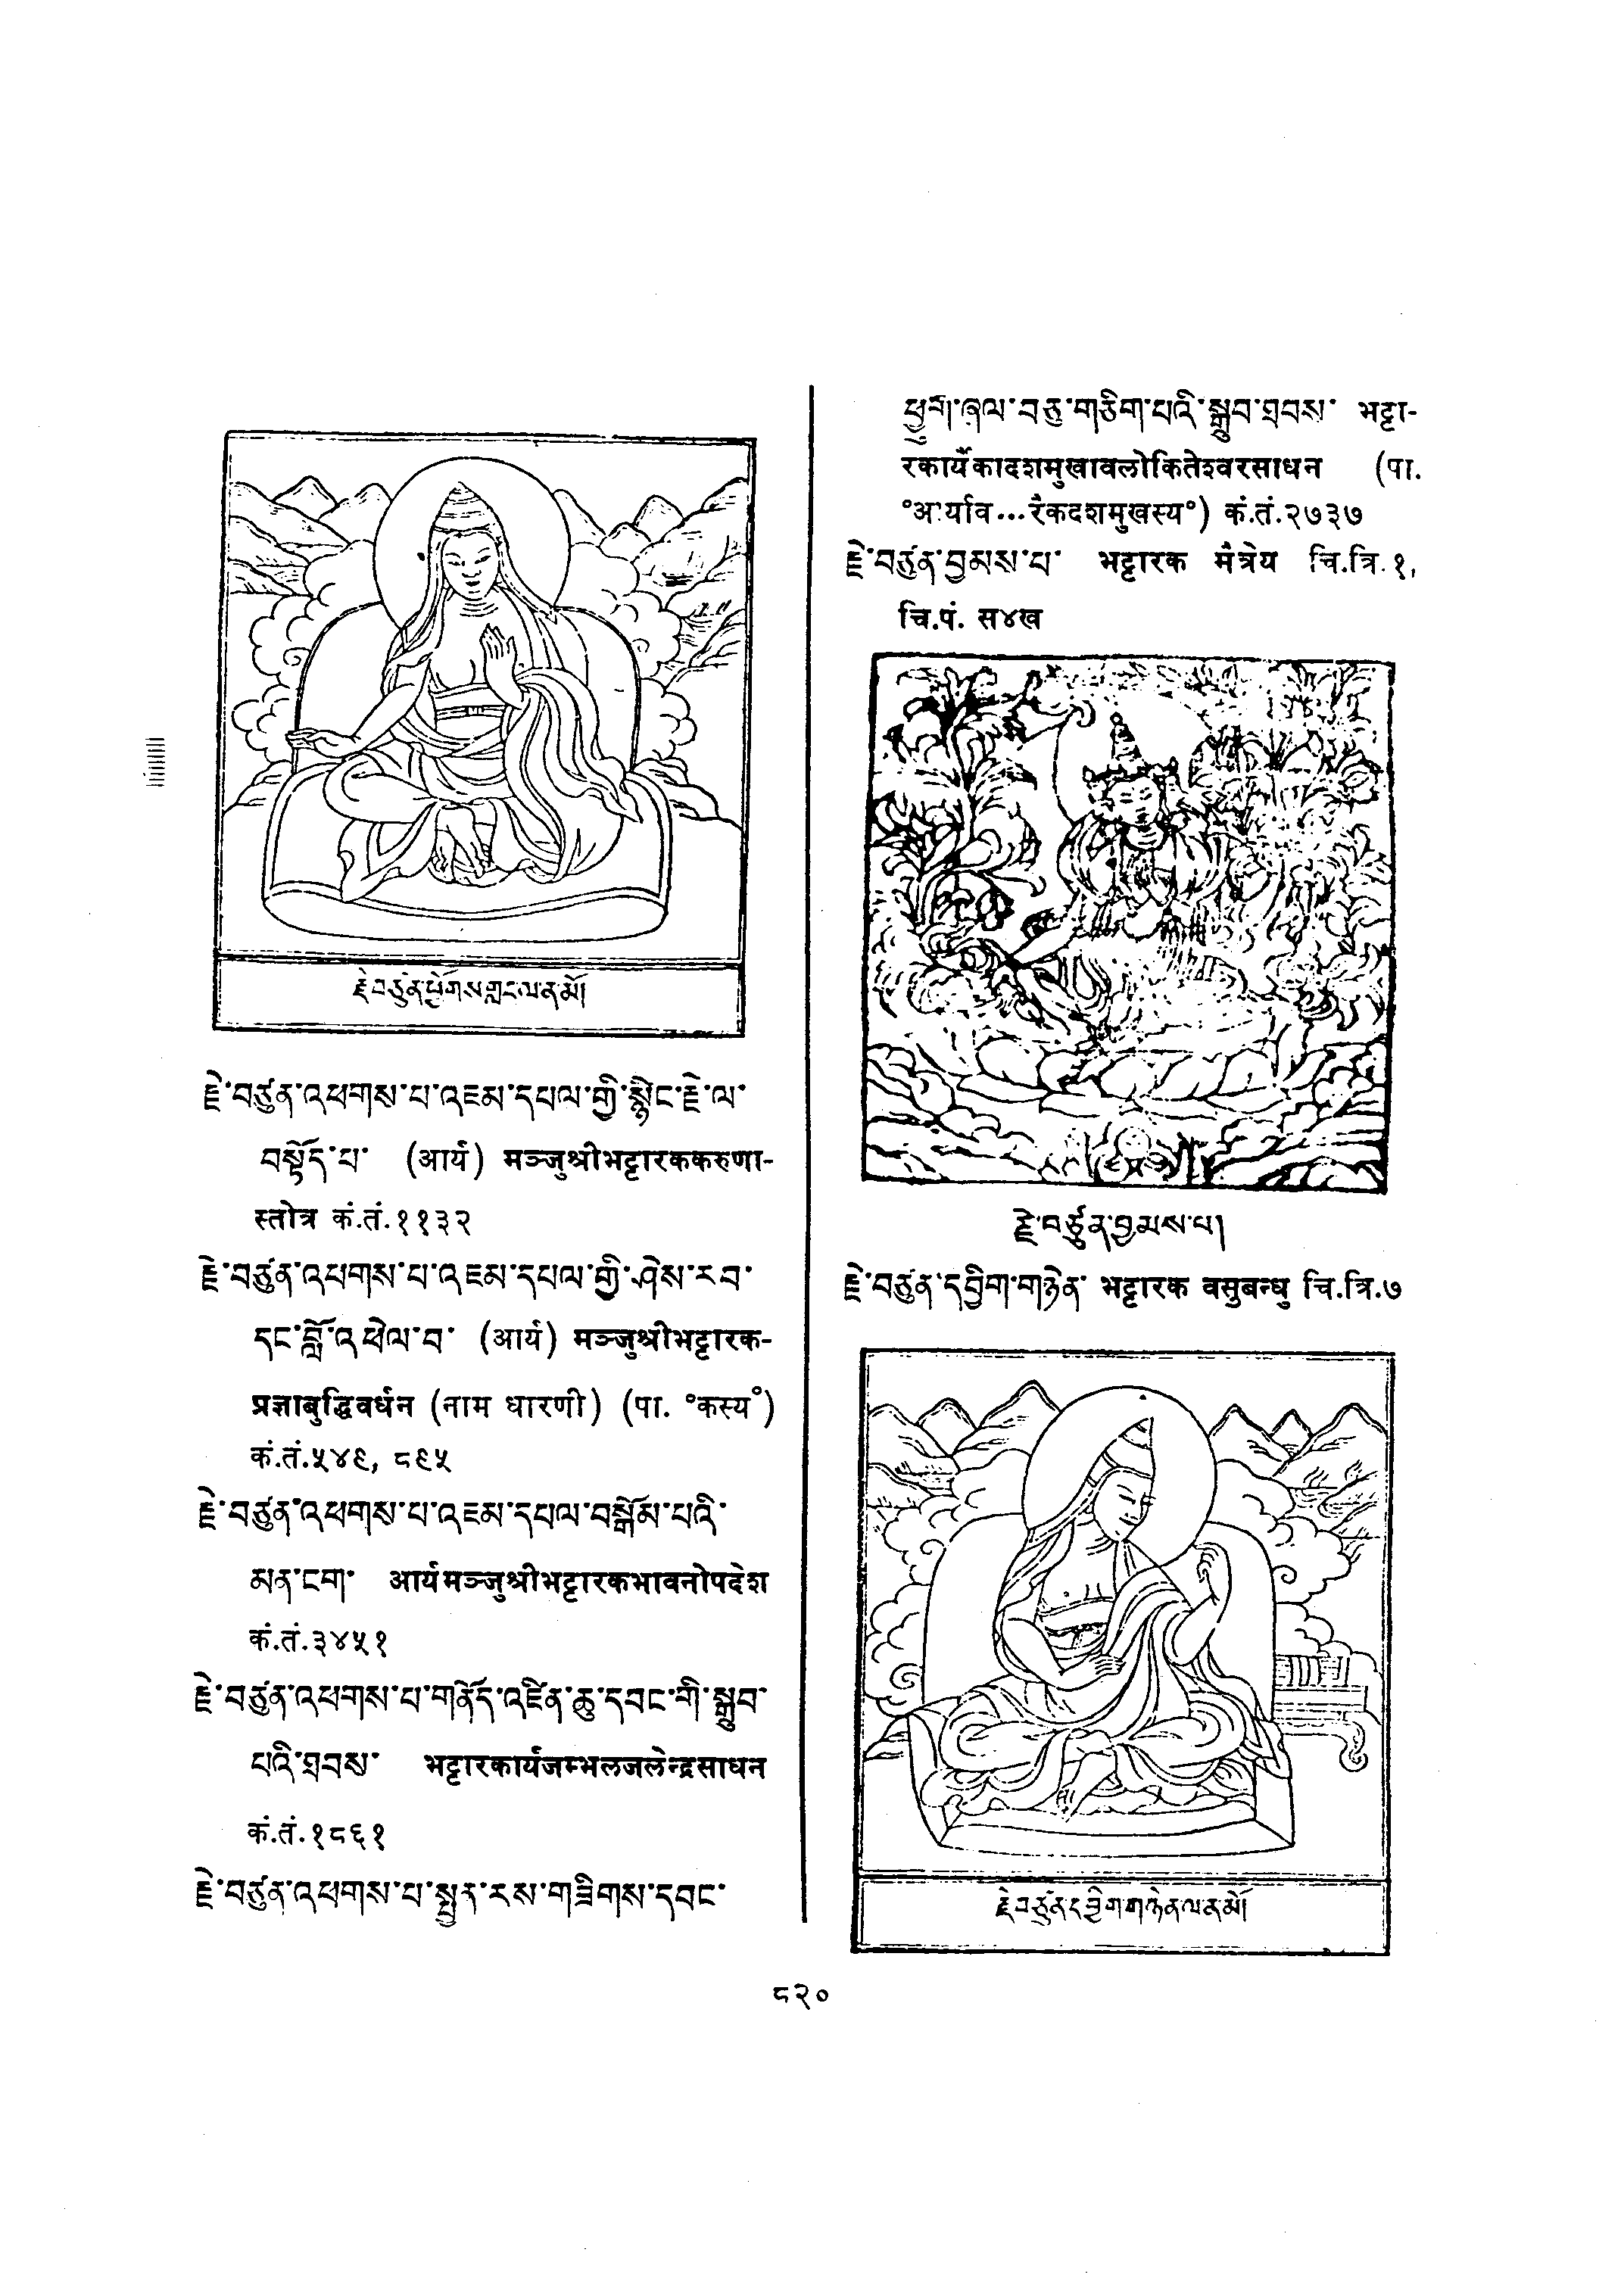 རྗེ་བཙུན་ཕྱོགས་གླང་ལ་ན་མོ།
རྗེ་བཙུན་འཕགས་པ་འཇམ་དཔལ་གྱི་སྙིང་རྗེ་ལ་
བསྟོད་པ་ (आर्य) मञ्जुश्रीभट्टारककरुणा-
स्तोत्र कं.तं.११३२
རྗེ་བཙུན་འཕགས་པ་འཇམ་དཔལ་གྱི་ཤེས་རབ་
དང་བློ་འཕེལ་བ་ (आर्य) मञ्जुश्रीभट्टारक-
प्रज्ञाबुद्धिवर्धन (नाम धारणी) (पा. °कस्य°)
कं.तं.५४९, ८९५
རྗེ་བཙུན་འཕགས་པ་འཇམ་དཔལ་བསྒོམ་པའི་
མན་ངག་ आर्यमञ्जुश्रीभट्टारकभावनोपदेश
कं.तं.३४५१
རྗེ་བཙུན་འཕགས་པ་གནོད་འཛིན་ཆུ་དབང་གི་སྒྲུབ་
པའི་ཐབས་ भट्टारकार्यजम्भलजलेन्द्रसाधन
कं.तं.१८६१
རྗེ་བཙུན་འཕགས་པ་སྤྱན་རས་གཟིགས་དབང་
ཕྱུག་ཞལ་བཅུ་གཅིག་པའི་སྒྲུབ་ཐབས་ भट्टा-
रकार्यैकादशमुखावलोकितेश्वरसाधन (पा.
°आर्याव...रैकदशमुखस्य°) कं.तं.२७३७
རྗེ་བཙུན་བྱམས་པ་ भट्टारक मैत्रेय चि.त्रि.१,
चि.पं. स४ख
རྗེ་བཙུན་བྱམས་པ།
རྗེ་བཙུན་དབྱིག་གཉེན་ भट्टारक वसुबन्धु चि.त्रि.७
རྗེ་བཙུན་དབྱིག་གཉེན་ལ་ན་མོ།
८२०